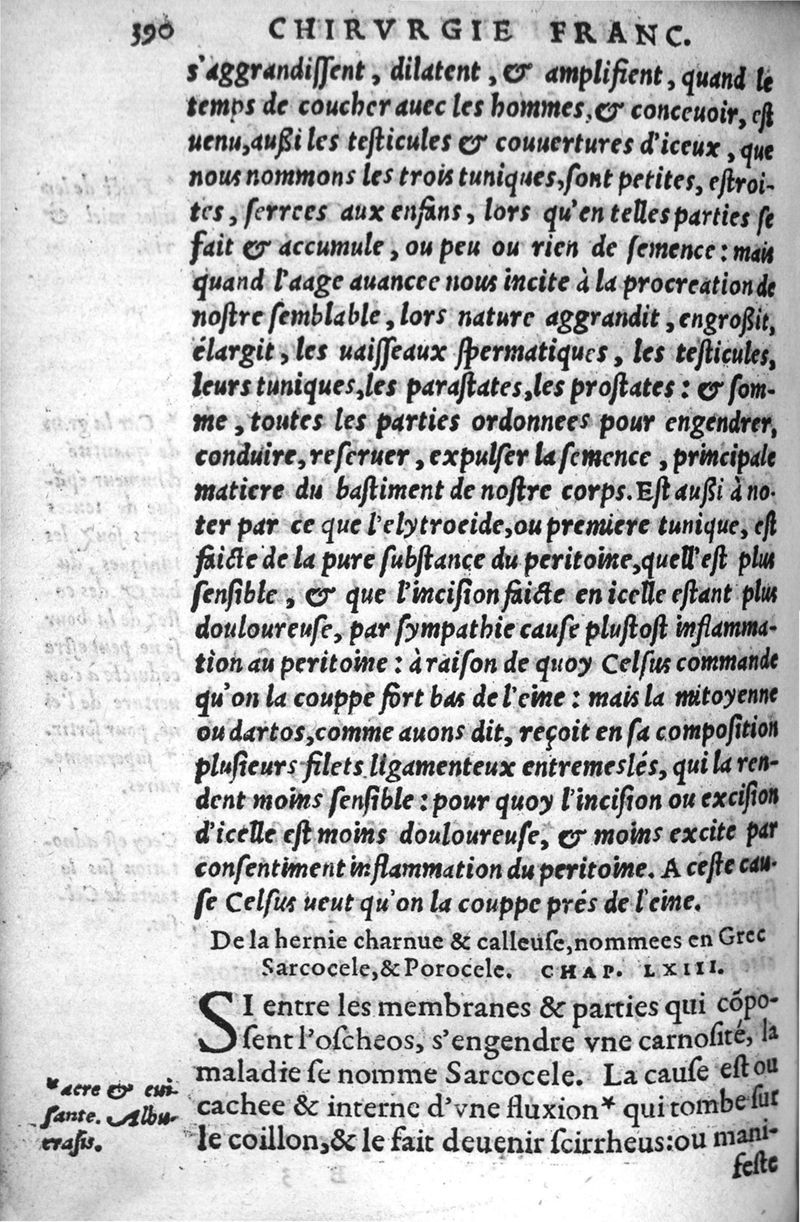 390 CHIRVRGIE FRANC.
s'aggrandiſſent, dilatent, & amplifient, quand le
temps de coucher auec les hommes, & conceuoir, eſt
uenu, außi les teſticules & couuertures d'iceux, que
nous nommons les trois tuniques, ſont petites, eſtroi-
tes, ſerrees aux enfans, lors qu'en telles parties ſe
fait & accumule, ou peu ou rien de ſemence: mais
quand l'aage auancee nous incite à la procreation de
noſtre ſemblable, lors nature aggrandit, engroßit,
élargit, les uaiſſeaux ſpermatiques, les teſticules,
leurs tuniques, les paraſtates, les proſtates: & ſom-
me, toutes les parties ordonnees pour engendrer,
conduire, reſeruer, expulſer la ſemence, principale
matiere du baſtiment de noſtre corps. Eſt außi à no-
ter par ce que l'elytroeide, ou premiere tunique, eſt
faicte de la pure ſubſtance du peritoine, quell'eſt plus
ſenſible, & que l'inciſion faicte en icelle eſtant plus
douloureuſe, par ſympathie cauſe pluſtoſt inflamma-
tion au peritoine: à raiſon de quoy Celſus commande
qu'on la couppe fort bas de l'eine: mais la mitoyenne
ou dartos, comme auons dit, reçoit en ſa compoſition
pluſieurs filets ligamenteux entremeslés, qui la ren-
dent moins ſenſible: pour quoy l'inciſion ou exciſion
d'icelle eſt moins douloureuſe, & moins excite par
conſentiment inflammation du peritoine. A ceſte cau-
ſe Celſus ueut qu'on la couppe prés de l'eine.
De la hernie charnue & calleuſe, nommees en Grec
Sarcocele, & Porocele. CHAP. LXIII.
SI entre les membranes & parties qui cõpo-
ſent l'oſcheos, s'engendre vne carnoſité, la
maladie ſe nomme Sarcocele. La cauſe eſt ou
cachee & interne d'vne fluxion* qui tombe ſur
le coillon, & le fait deuenir ſcirrheus: ou mani-
feſte
*acre & cui-
ſante. Albu-
craſis.